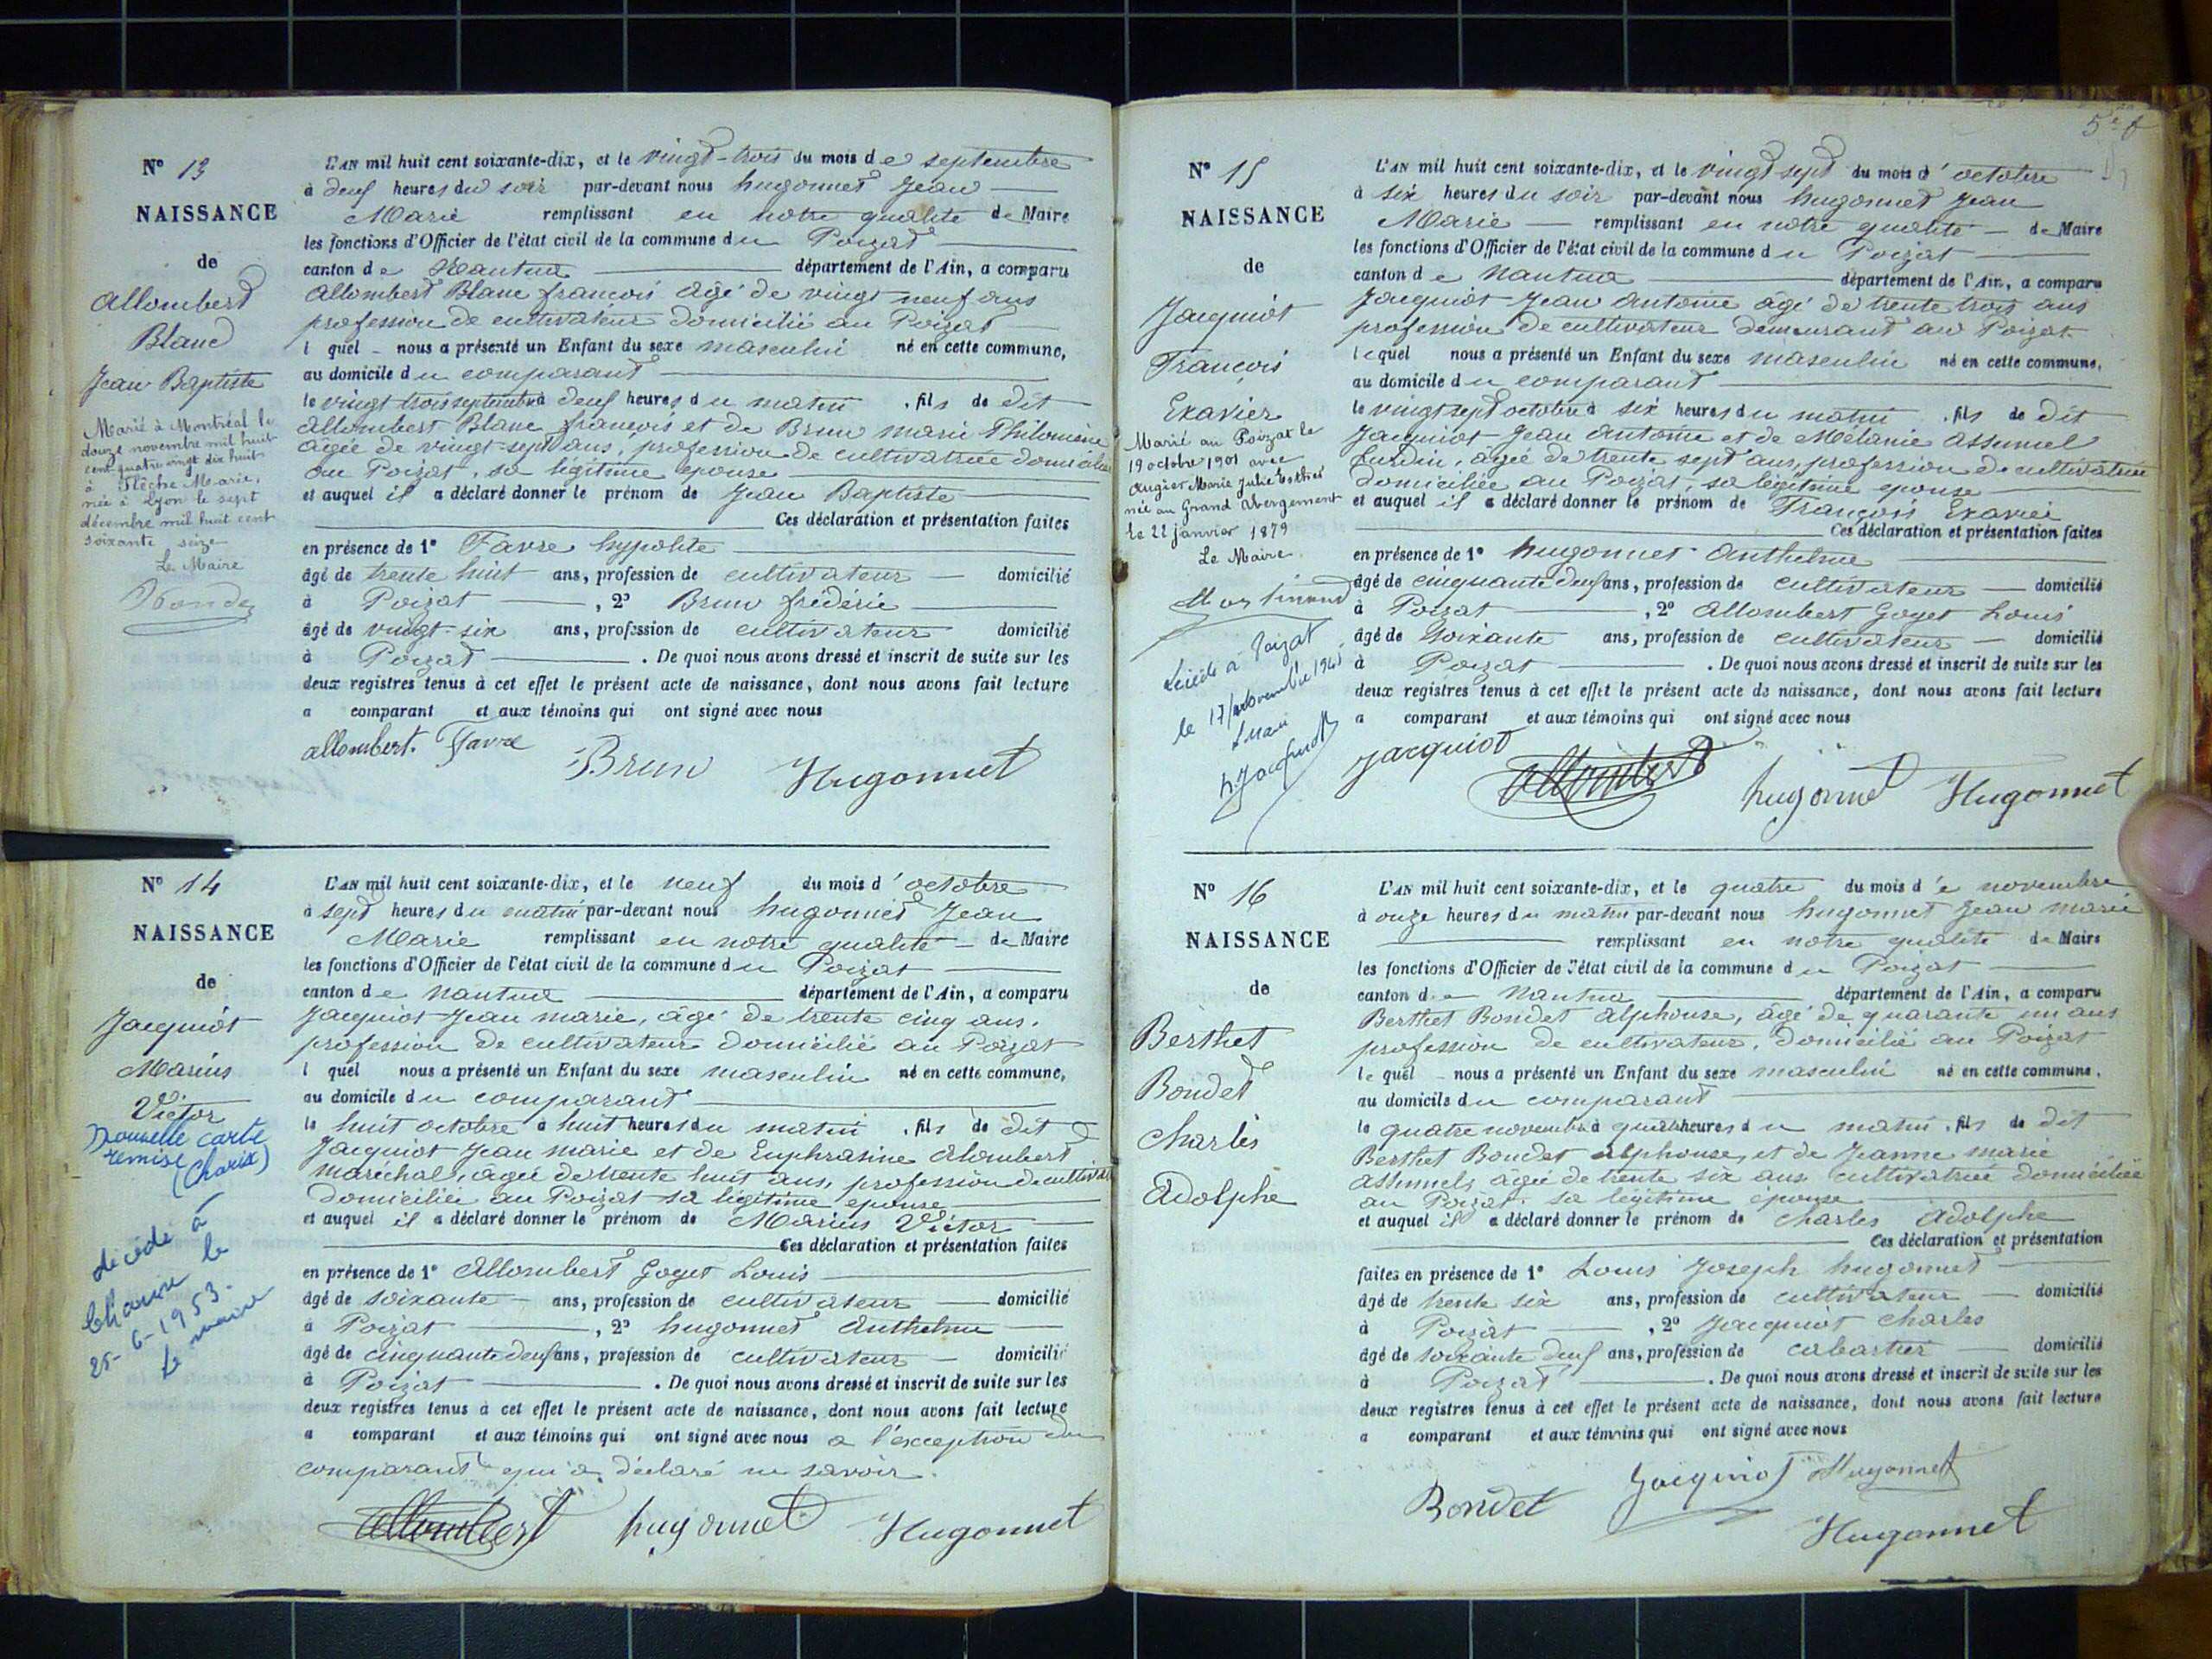 5e f
N° 13
NAISSANCE
de
Allombert
Blanc
Jean Baptiste
Marié à Montréal le
douze novembre mil huit
cent quatre vingt dix huit
à Flèche Marie,
née à Lyon le sept
décembre mil huit cent
soixante seize
Le Maire
L'AN mil huit cent soixante-dix, et le vingt-trois du mois de septembre
à deux heures du soir par-devant nous hugonnet Jean
Marie remplissant en notre qualité de Maire
les fonctions d'Officier de l'état civil de la commune du Poizat
canton de Nantua département de l'Ain, a comparu
Allombert Blanc françois âgé de vingt neuf ans
profession de cultivateur domicilié au Poizat
l quel nous a présenté un Enfant du sexe masculin né en cette commune,
au domicile du comparant
le vingt trois septembre à deux heures du matin , fils de dit
Allombert Blanc françois et de Brun marie Philomène
âgée de vingt-sept ans, profession de cultivatrice domiciliée
au Poizat, sa légitime épouse
et auquel il a déclaré donner le prénom de Jean Baptiste
Ces déclaration et présentation faites
en présence de 1° Favre hypolite
âgé de trente huit ans, profession de cultivateur domicilié
à Poizat , 2° Brun frédéric
âgé de vingt-six ans, profession de cultivateur domicilié
à Poizat . De quoi nous avons dressé et inscrit de suite sur les
deux registres tenus à cet effet le présent acte de naissance, dont nous avons fait lecture
a comparant et aux témoins qui ont signé avec nous
allombert. Favre Brun Hugonnet
N° 14
NAISSANCE
de
Jacquiot
Marius
Victor
Nouvelle carte
remise
(Charix)
décédé à
Charix le
25-6-1953.
Le maire
L'AN mil huit cent soixante-dix, et le neuf du mois d'octobre
à sept heures du matin par-devant nous hugonnet Jean
Marie remplissant en notre qualité de Maire
les fonctions d'Officier de l'état civil de la commune du Poizat
canton de Nantua département de l'Ain, a comparu
Jacquiot Jean marie, âgé de trente cinq ans.
profession de cultivateur domicilié au Poizat
l quel nous a présenté un Enfant du sexe masculin né en cette commune,
au domicile du comparant
le huit octobre à huit heures du matin , fils de dit
Jacquiot Jean marie et de Euphrasine Alombert
maréchal, âgée de trente huit ans, profession de cultivat
domiciliée au Poizat sa légitime épouse
et auquel il a déclaré donner le prénom de Marius Victor
Ces déclaration et présentation faites
en présence de 1° Allombert Goget Louis
âgé de soixante ans, profession de cultivateur domicilié
à Poizat , 2° hugonnet Anthelme
âgé de cinquante deux ans, profession de cultivateur domicilié
à Poizat . De quoi nous avons dressé et inscrit de suite sur les
deux registres tenus à cet effet le présent acte de naissance, dont nous avons fait lecture
a comparant et aux témoins qui ont signé avec nous a l'exception du
comparant qui a déclaré ne savoir.
Allombert hugonnet Hugonnet
N° 15
NAISSANCE
de
Jacquiot
François
Exavier
Marié au Poizat le
19 octobre 1901 avec
Augier Marie Julie Esther
née au Grand Abergement
le 22 janvier 1879
Le Maire
décédé à Poizat
le 17 novembre 194
L'AN mil huit cent soixante-dix, et le vingt sept du mois d'octobre
à six heures du soir par-devant nous hugonnet Jean
Marie remplissant en notre qualité de Maire
les fonctions d'Officier de l'état civil de la commune du Poizat
canton de Nantua département de l'Ain, a comparu
Jacquiot Jean Antoine âgé de trente trois ans
profession de cultivateur demeurant au Poizat
lequel nous a présenté un Enfant du sexe masculin né en cette commune,
au domicile du comparant
le vingt sept octobre à six heures du matin , fils de dit
Jacquiot Jean Antoine et de Mélanie Assumel
Lurdin, âgée de trente sept ans, profession de cultivatrice
domiciliée au Poizat, sa légitime épouse
et auquel il a déclaré donner le prénom de François Exavier
Ces déclaration et présentation faites
en présence de 1° hugonnet Anthelme
âgé de cinquante deux ans, profession de cultivateur domicilié
à Poizat , 2° Allombert Goget Louis
âgé de soixante ans, profession de cultivateur domicilié
à Poizat . De quoi nous avons dressé et inscrit de suite sur les
deux registres tenus à cet effet le présent acte de naissance, dont nous avons fait lecture
a comparant et aux témoins qui ont signé avec nous
Jacquiot Allombert hugonnet Hugonnet
N° 16
NAISSANCE
de
Berthet
Bondet
Charles
Adolphe
L'AN mil huit cent soixante-dix, et le quatre du mois de novembre
à onze heures du matin par-devant nous hugonnet Jean marie
remplissant en notre qualité de Maire
les fonctions d'Officier de l'état civil de la commune du Poizat
canton de Nantua département de l'Ain, a comparu
Berthet Bondet Alphonse, âgé de quarante un ans
profession de cultivateur, domicilié au Poizat
le quel nous a présenté un Enfant du sexe masculin né en cette commune,
au domicile du comparant
le quatre novembre à quatre heures du matin , fils de dit
Berthet Bondet alphonse, et de Jeanne marie
Assumel, âgée de trente six ans cultivatrice domiciliée
au Poizat. sa légitime épouse
et auquel il a déclaré donner le prénom de Charles Adolphe
Ces déclaration et présentation
faites en présence de 1° Louis Joseph hugonnet
âgé de trente six ans, profession de cultivateur domicilié
à Poizat , 2° Jacquiot Charles
âgé de soixante deux ans, profession de cabartier domicilié
à Poizat . De quoi nous avons dressé et inscrit de suite sur les
deux registres tenus à cet effet le présent acte de naissance, dont nous avons fait lecture
a comparant et aux témoins qui ont signé avec nous
Bondet Jacquiot Hugonnet
Hugonnet